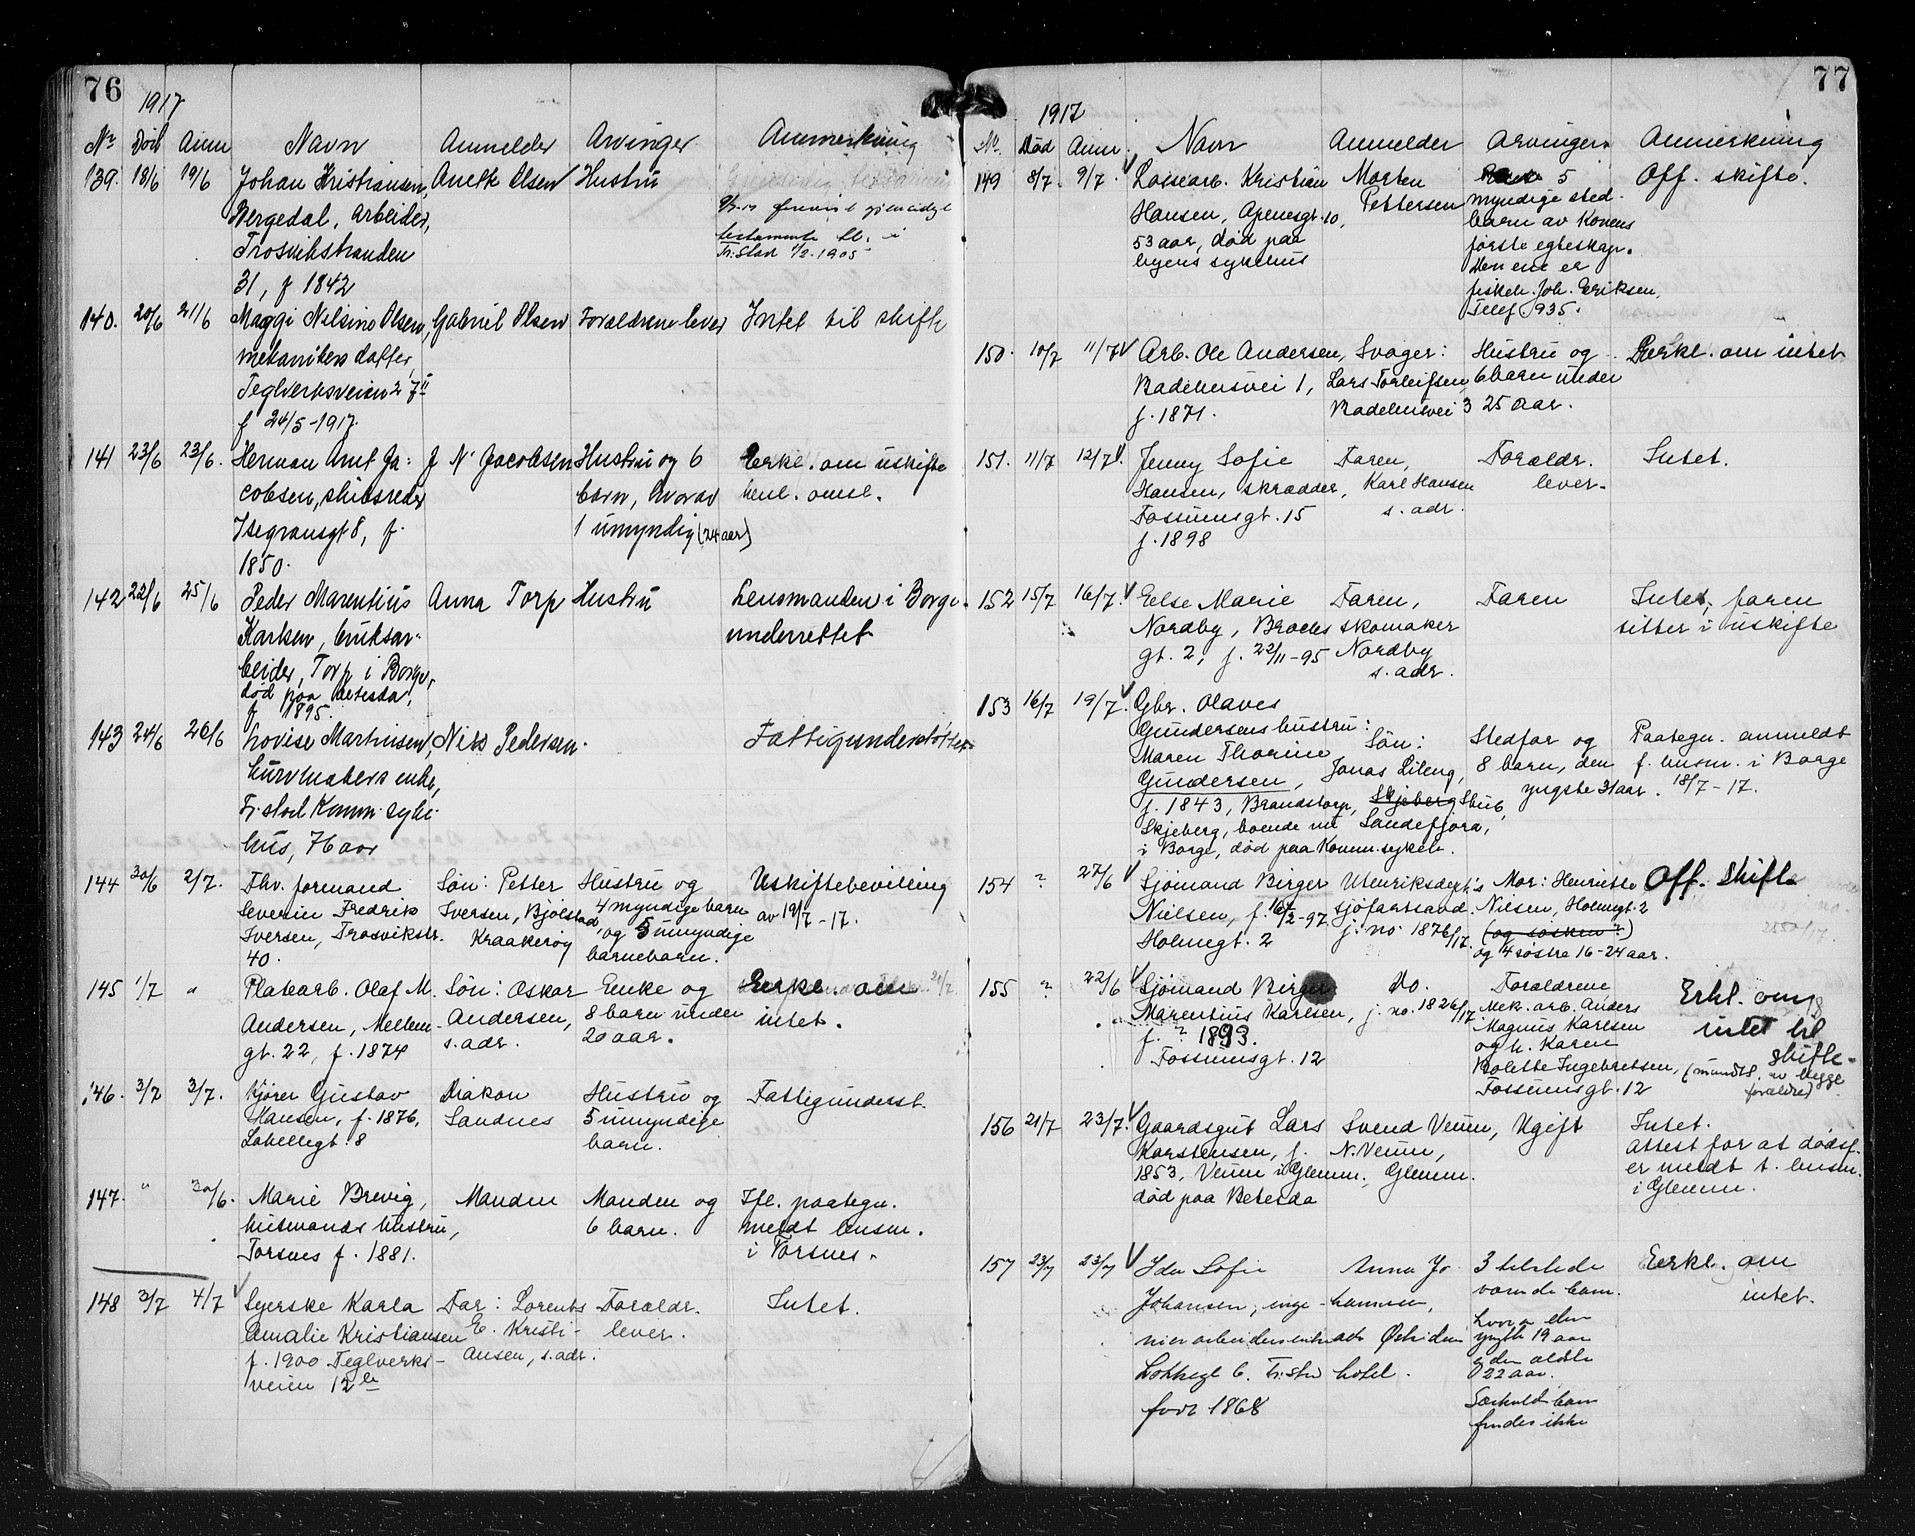 76
1917
Nr Död Anm Navn Anmelder Arvinger Anmerkning
139. 18/6 19/6 Johan Kristiansen, Anette Olsen Hustru
Bergedal, arbeider,
Trosvikstranden
31, f 1842
gjensidig
testamente
Fr.stad 1/2-1905
140. 20/6 21/6 Maggi Nilsine Olsen, Gabriel Olsen Forældrene lever Intet til skifte
mekanikers datter,
Teglverksveien 27 II
f 24/5-1917.
141 23/6 23/6. Herman Amt Ja- J N. Jacobsen Hustru og 6 Erkl. om uskifte
cobsen, skibsreder barn, hvorav
Isegransgt 8, f. 1 umyndig (24 aar)
1850.
142 22/6 25/6 Peder Marentius Anna Torp Hustru Lensmanden i Borge
Karlsen, bruksar- underrettet
beider, Torp i Borge,
död paa Betesda,
f 1895.
143 24/6 26/6 Lovise Martinsen, Nils Pedersen. Fattigunderstöttet
kurvmakers enke,
Fr.stad Komm. syke-
hus, 76 aar
144 30/6 2/7. Fhv. formand Sön: Petter Hustru og Uskiftebevilling
Severin Fredrik Iversen, Bjölstad, 4 myndige barn av 19/7-17.
Iversen, Trosvikstr. Kraakeröy og 5 umyndige
40. barnebarn.
145 1/7 " Platearb. Olaf M. Sön: Oskar Enke og Erkl. om
Andersen, Mellem- Andersen, 8 barn under intet.
gt. 22, f. 1874 s. adr. 20 aar.
146. 3/7 3/7. Kjörer Gustav Diakon Hustru og Fattigunderst.
Hansen, f. 1876, Sandnes 5 umyndige
Labellegt. 8 barn.
147. " 30/6. Marie Brevig, Manden Manden og Ifl. paategn.
husmands hustru, 6 barn. meldt lensm.
Torsnes f. 1881. i Torsnes.
148 3/7 4/7 Syerske Karla Far: Lorents Forældr. Intet.
Amalie Kristiansen E. Kristi- lever.
f. 1900 Teglverks- ansen, s. adr.
veien 12
77
1917
Nr. Död Anm. Navn Anmelder Arvinger Anmerkning
149 8/7. 9/7. Lossearb. Kristian Morten 5 Off. skifte.
Hansen, Apenesgt. 10, Pettersen myndige sted-
53 aar, död paa barn av Konens
byens sykehus förste egteskap.
Den ene er
fiskeh. Joh. Eriksen,
Telef. 935.
150. 10/7 11/7 Arb. Ole Andersen, Svoger: Hustru og Erkl. om intet
Badehusvei 1, Lars Torleifsen, 6 barn under
f. 1871. Badehusvei 3 25 aar.
151. 11/7 12/7. Jenny Sofie Faren, Forældr. Intet.
Hansen, skrædder, Karl Hansen lever.
Fossumsgt. 15 s. adr.
f. 1898
152 15/7 16/7. Else Marie Faren, Faren Intet, faren
Nordby, Brochs skomaker sitter i uskifte
gt. 2, f. 22/11-95 Nordby
s. adr.
153 16/7 19/7. Gbr. Olaves
Gundersens hustru:
Maren Thorine Sön: Stedfar og Paategn. anmeldt
Gundersen, Jonas Lileng, 8 barn, den f. lensm. i Borge
f. 1843, Brandstorp, Skjeberg yngste 31 aar. 18/7-17.
Skjeberg, boende Sandefjord,
i Borge, död paa Komm. sykeh.
154 ? 27/6 Sjömand Birger Utenriksdept.s Mor: Henriette Off. skifte
Nielsen, f. 16/2-97 sjöfartsavd. Nilsen, Holmegt. 2
Holmegt. 2 j. no. 1876/17. (og sösken?)
og 4 söstre 16-24 aar.
155 ? 22/6 Sjömand Birger Do. Forældrene Erkl. om
Marentius Karlsen, j. no. 1826/17. Mek. arb. Anders intet til
f. ? 1893. Magnus Karlsen skifte.
Fossumsgt. 12 og h. Karen (mundtl. av begge
Bolette Ingebretsen, forældre)
Fossumsgt. 12
156 21/7 23/7. Gaardsgut Lars Svend Veum, Ugift Intet.
Karstensen, f. N. Veum, Attest for at dödsf.
1853, Veum i Glemm. Glemm. er meldt t. lensm.
död paa Betesda i Glemm.
157 23/7 23/7 Ida Sofie Anna Jo- 3 tilstede Erkl. om
Johansen, inge- hannesen, værende barn. intet.
niörarbeidersenke hvorav den
Lökkegt 6. Fr.stad hotel. yngste 19 aar
född 1868 og den ældste
22 aar.
Særkuldsbarn
findes ikke